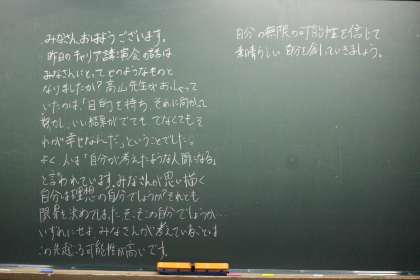 みなさん、おはようございます。
昨日のキャリア講演会の話は
みなさんにとってどのようなものと
なりましたか？高山先生がおっしゃって
いたのは、「目的を持ち、それに向かって
努力し、いい結果がでても、でなくてもそ
れが幸せなんだ」ということでした。
よく、人は「自分が考えたような人間になる」
と言われています。みなさんが思い描く
自分は理想の自分でしょうか？それとも
限界を決めてしまった、そこそこの自分でしょうか…
いずれにせよ みなさんが考えていることは
この先起こる可能性が高いです。
自分の無限の可能性を信じて
素晴らしい自分を創っていきましょう。